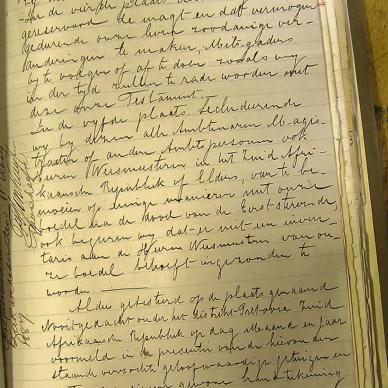 in de vierde plaats
gereserveerd de magt en dat vermogen
gedurende onze leven zoodanige ver-
anderingen te maken, Mits gaders
by te voegen of af te doen zooals wy
in der tyd zullen te rade worden met
deze onze Testament.
In de vyfde plaats Secludeerende
wy by dezen alle Ambtenaren Magis-
traaten of andere Ambtspersoonen ook
Heeren Weesmeesteren in het Zuid Afri-
kaansche Republiek of Elders, van te be-
moeien op eenige manieren met onzen
boedel na de dood van de Eerststervende
ook begeeren wy dat er niet een inven-
taris aan de Heeren Weesmeesters van on-
ze boedel behoeft ingezonden te
worden.
Aldus getesteerd op de plaats genaamd
Nooitgedacht onder het district Pretoria Zuid
Afrikaansche Republiek op dag, Maand en Jaar
voormeld in de presentie van de hieronder
staande verzochte geloofwaardige getuigen en
gewoone handteekening